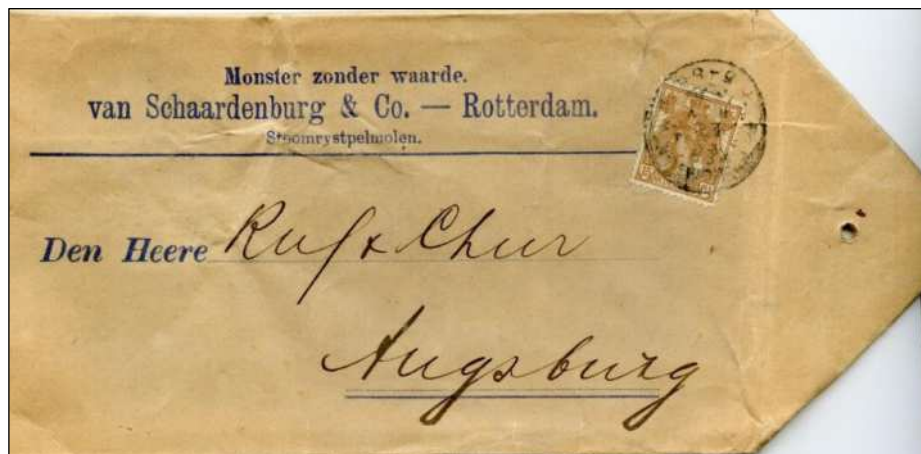 Monster zonder waarde.
van Schaardenburg & Co. — Rotterdam.
Stoomrystpelmolen.
Den Heere Ruf & Chur
Augsburg